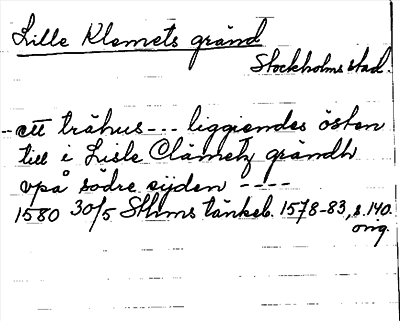 Lille Klemets gränd
Stockholms stad.
- ett trähus --- liggiendes östen
till i Lisle Clämetz grändh
vpå södre sijden ----
1580 30/5 Sthms tänkeb. 1578-83, s. 140.
orig.